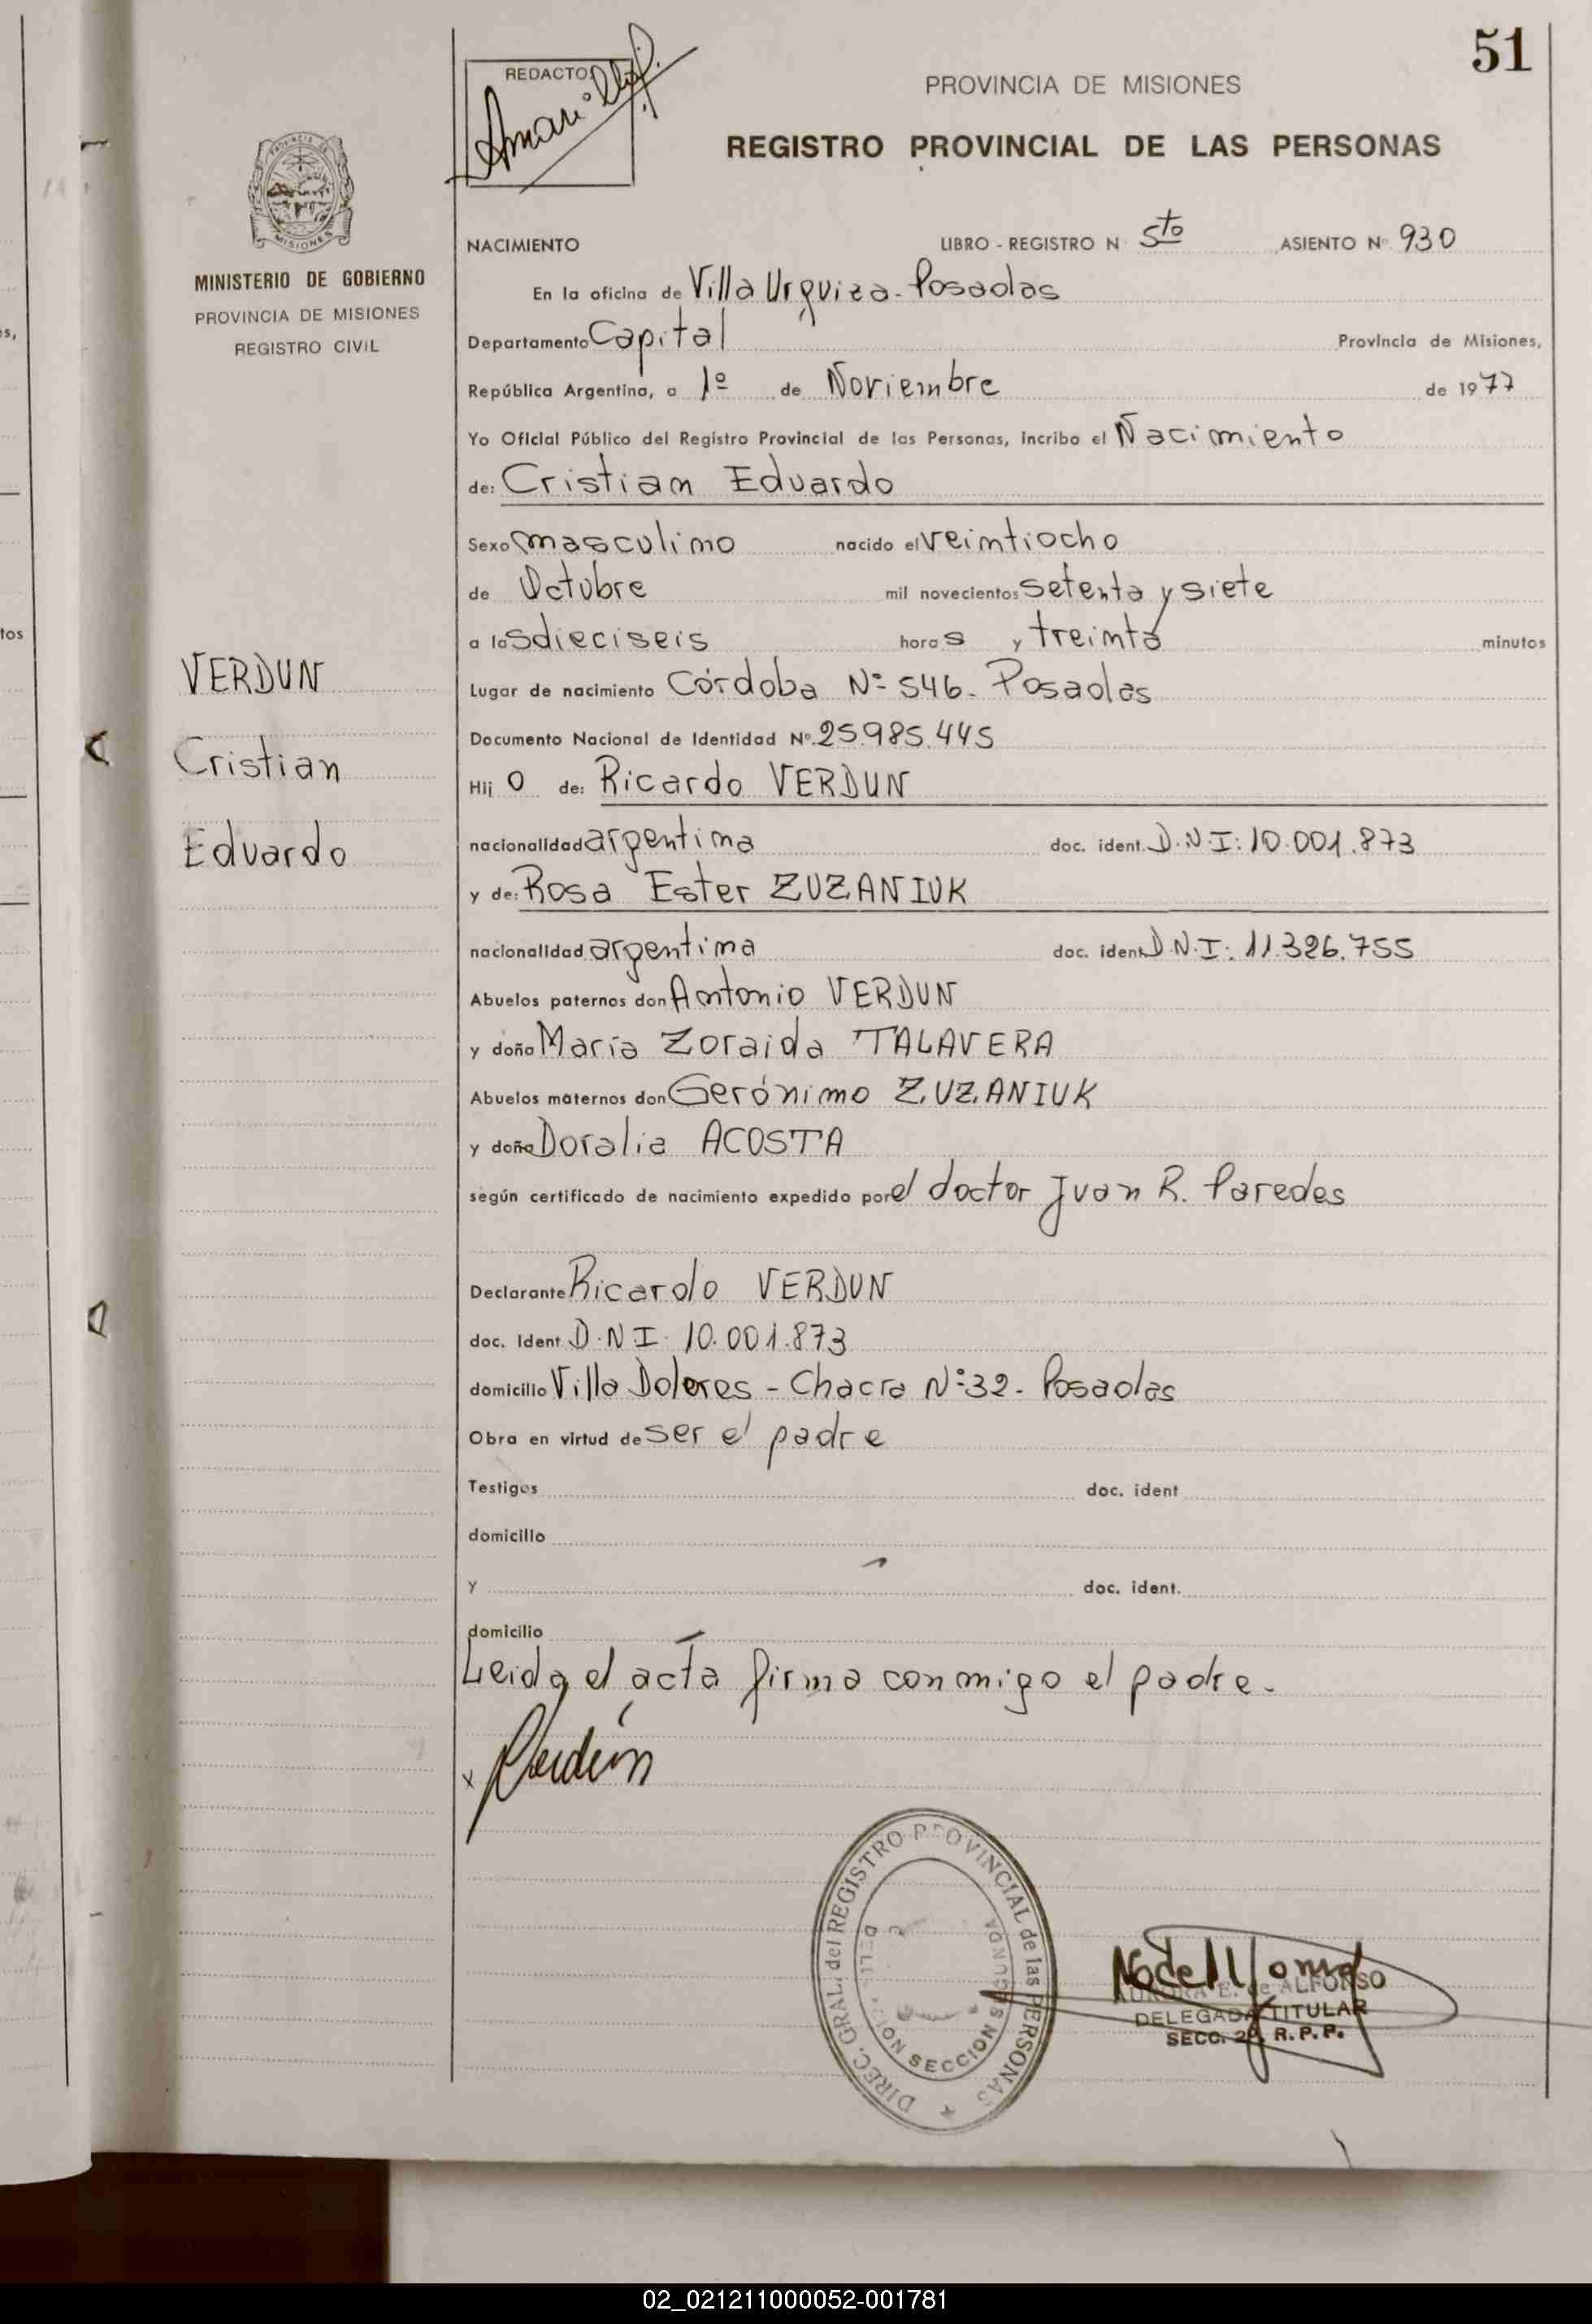 51
REDACTOR
PROVINCIA DE MISIONES
REGISTRO PROVINCIAL DE LAS PERSONAS
MISIONES
MINISTERIO DE GOBIERNO
PROVINCIA DE MISIONES
REGISTRO CIVIL
VERDUN
Cristian
Eduardo
NACIMIENTO LIBRO - REGISTRO N 5to ASIENTO Nº 930
En la oficina de Villa Urquiza - Posadas
Departamento Capital Provincia de Misiones,
República Argentina, a 1º de Noviembre de 1977
Yo Oficial Público del Registro Provincial de las Personas, incribo el Nacimiento
de: Cristian Eduardo
Sexo masculino nacido el veintiocho
de Octubre mil novecientos setenta y siete
a las dieciseis horas y treinta minutos
Lugar de nacimiento Córdoba Nº 546 - Posadas
Documento Nacional de Identidad Nº 25.985.445
Hij o de: Ricardo VERDUN
nacionalidad argentina doc. ident. D.N.I: 10.001.873
y de: Rosa Ester ZUZANIUK
nacionalidad argentina doc. ident D.N.I: 11.326.755
Abuelos paternos don Antonio VERDUN
y doña María Zoraida TALAVERA
Abuelos maternos don Gerónimo ZUZANIUK
y doña Doralia ACOSTA
según certificado de nacimiento expedido por el doctor Juan R. Paredes
Declarante Ricardo VERDUN
doc. Ident D.N.I. 10.001.873
domicilio Villa Dolores - Chacra Nº 32 - Posadas
Obra en virtud de ser el padre
Testigos doc. ident
domicilio
y doc. ident.
domicilio
Leida el acta firma conmigo el padre.
x Verdún
DIREC. GRAL. del REGISTRO PROVINCIAL de las PERSONAS
SECCION SEGUNDA
AURORA E. de ALFONSO
DELEGADA TITULAR
SECC. 2ª. R.P.P.
02_021211000052-001781